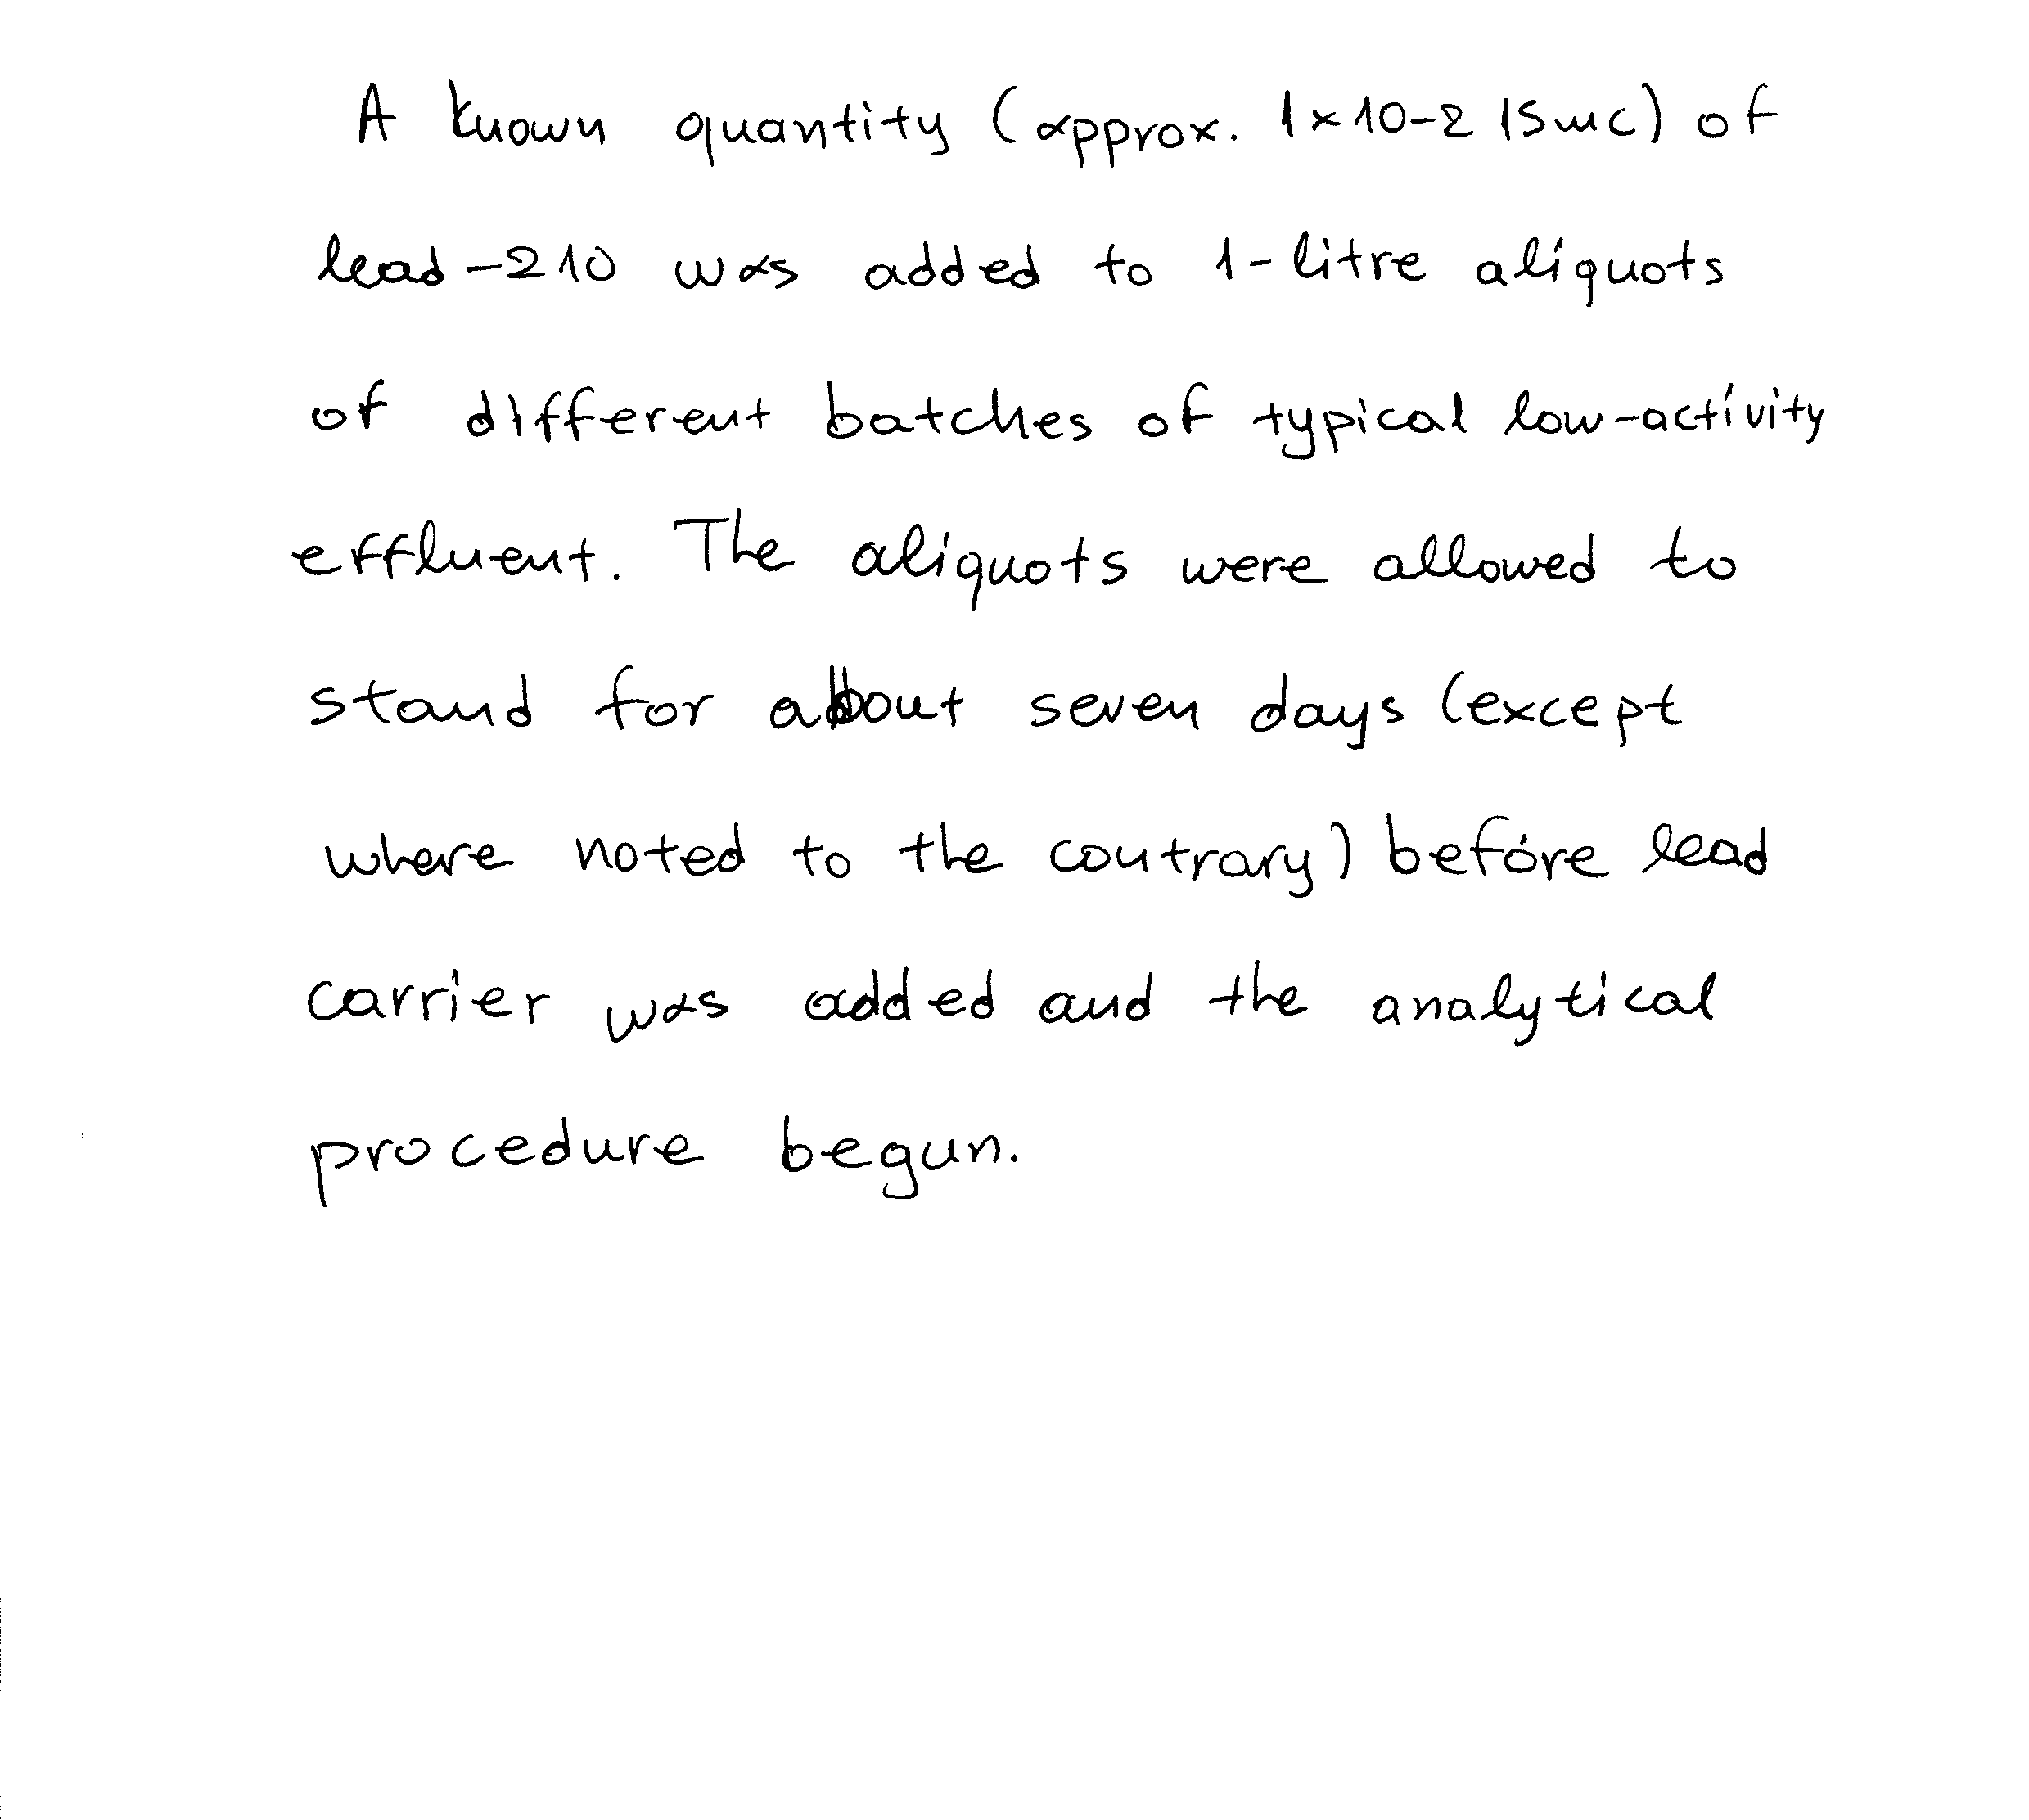 A known quantity (approx. 1x10-2 15mc) of
lead-210 was added to 1-litre aliquots
of different batches of typical low-activity
effluent. The aliquots were allowed to
stand for about seven days (except
where noted to the contrary) before lead
carrier was added and the analytical
procedure begun.